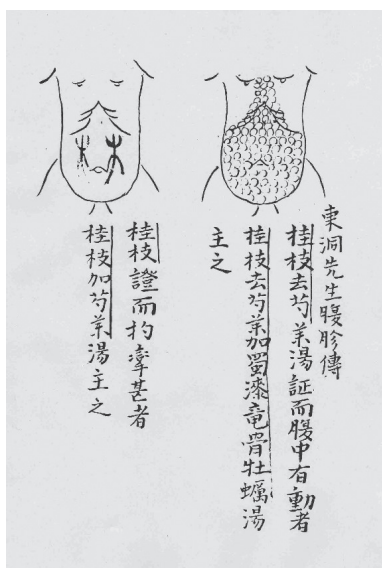 東洞先生腹胗傳
桂枝去芍薬湯証而腹中有動者
桂枝去芍薬加蜀漆竜骨牡蠣湯
主之
桂枝證而拘攣甚者
桂枝加芍薬湯主之